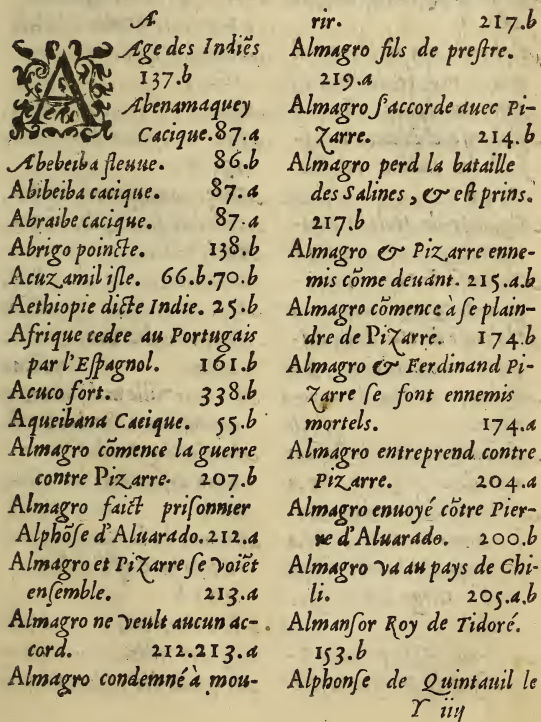 A
Age des Indiēs
137.b
Abenamaquey
Cacique.87.a
Abebeiba fleuue. 86.b
Abibeiba cacique. 87.a
Abraibe cacique. 87.a
Abrigo poincte. 138.b
Acuzamil isle. 66.b.70.b
Aethiopie dicte Indie. 25.b
Afrique cedee au Portugais
par l'Espagnol. 161.b
Acuco fort. 338.b
Aqueibana Caeique. 55.b
Almagro cōmence la guerre
contre Pizarre. 207.b
Almagro faict prisonnier
Alphōse d'Aluarado.212.a
Almagro et Pizarre se voiēt
ensemble. 213.a
Almagro ne veult aucun ac-
cord. 212.213.a
Almagro condemné à mou-
rir. 217.b
Almagro fils de prestre.
219.a
Almagro s'accorde auec Pi-
zarre. 214.b
Almagro perd la bataille
des Salines, & est prins.
217.b
Almagro & Pizarre enne-
mis cōme deuant. 215.a.b
Almagro cōmence à se plain-
dre de Pizarre. 174.b
Almagro & Ferdinand Pi-
zarre se font ennemis
mortels. 174.a
Almagro entreprend contre
Pizarre. 204.a
Almagro enuoyé cōtre Pier-
re d'Aluarado. 200.b
Almagro va au pays de Chi-
li. 205.a.b
Almansor Roy de Tidoré.
153.b
Alphonse de Quintauil le
Y iiij